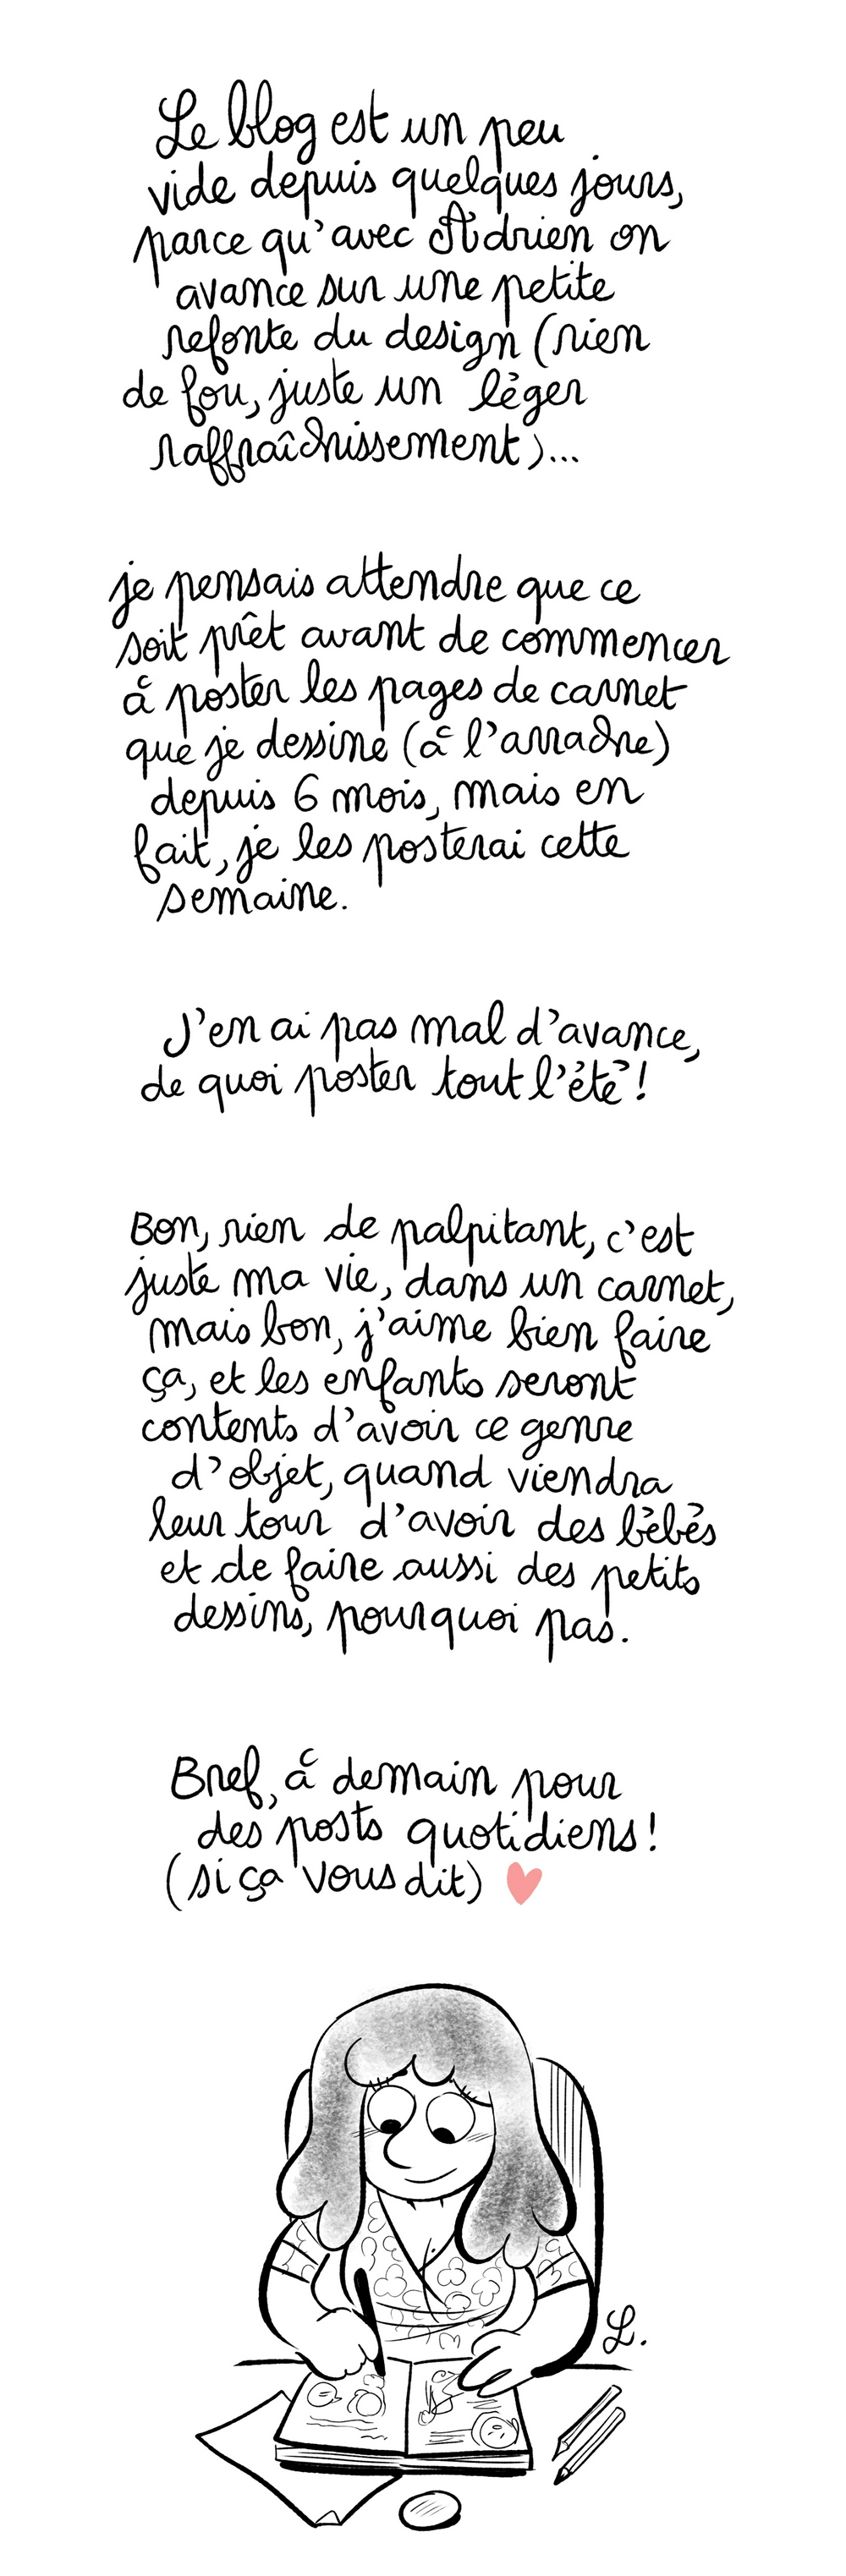 Le blog est un peu
vide depuis quelques jours,
parce qu'avec Adrien on
avance sur une petite
refonte du design (rien
de fou, juste un léger
raffraîchissement)...
je pensais attendre que ce
soit prêt avant de commencer
à poster les pages de carnet
que je dessine (à l'arrache)
depuis 6 mois, mais en
fait, je les posterai cette
semaine.
J'en ai pas mal d'avance,
de quoi poster tout l'été !
Bon, rien de palpitant, c'est
juste ma vie, dans un carnet,
mais bon, j'aime bien faire
ça, et les enfants seront
contents d'avoir ce genre
d'objet, quand viendra
leur tour d'avoir des bébés
et de faire aussi des petits
dessins, pourquoi pas.
Bref, à demain pour
des posts quotidiens !
(si ça vous dit) ♥
L.